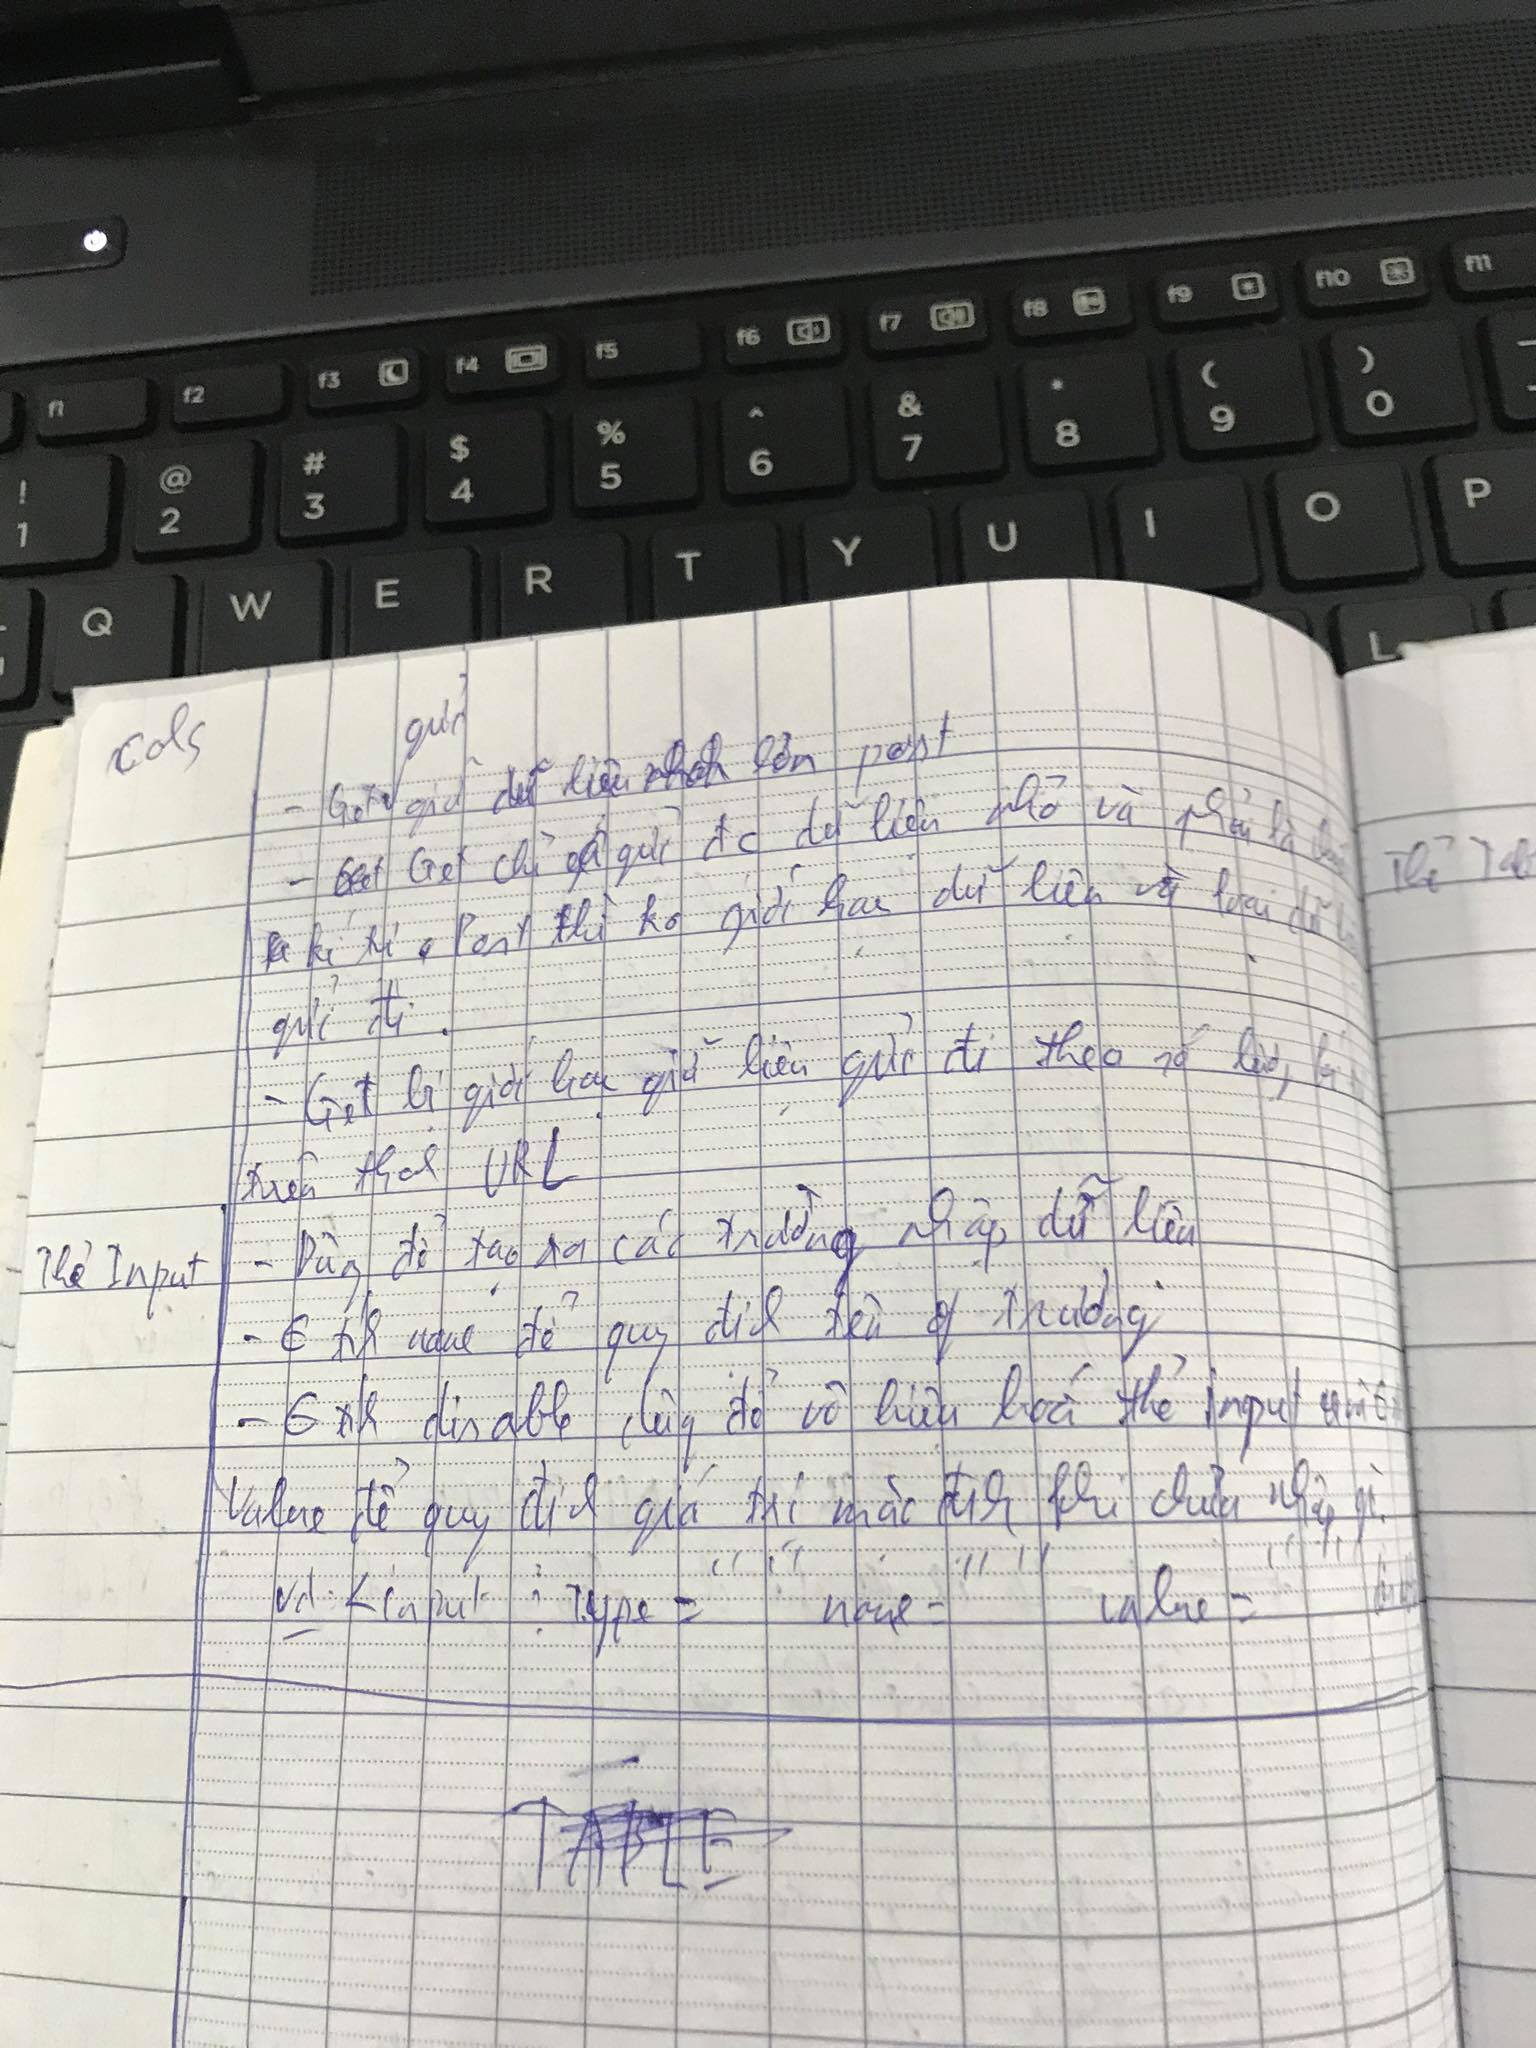 f1 f2 f3 f4 f5 f6 f7 f8 f9 f10 f11
! @ # $ % ^ & * ( )
1 2 3 4 5 6 7 8 9 0
Q W E R T Y U I O P
L
cols
gửi
- Get giử dữ liệu nhanh hơn post
- Get chỉ gửi đc dữ liệu nhỏ và phải là
kí tự. Post thì ko giới hạn dữ liệu và loại dữ
gửi đi.
- Get bị giới hạn giữ liệu gửi đi theo số
trên thanh URL
Thẻ Input
- Dùng để tạo ra các trường nhập dữ liệu
- name để quy định tên trường
- disable dùng để vô hiệu hoá thẻ input
Value để quy định giá trị mặc định khi chưa nhập gì.
vd: <input type = " " name = " " value = " "
TABLE
Thẻ